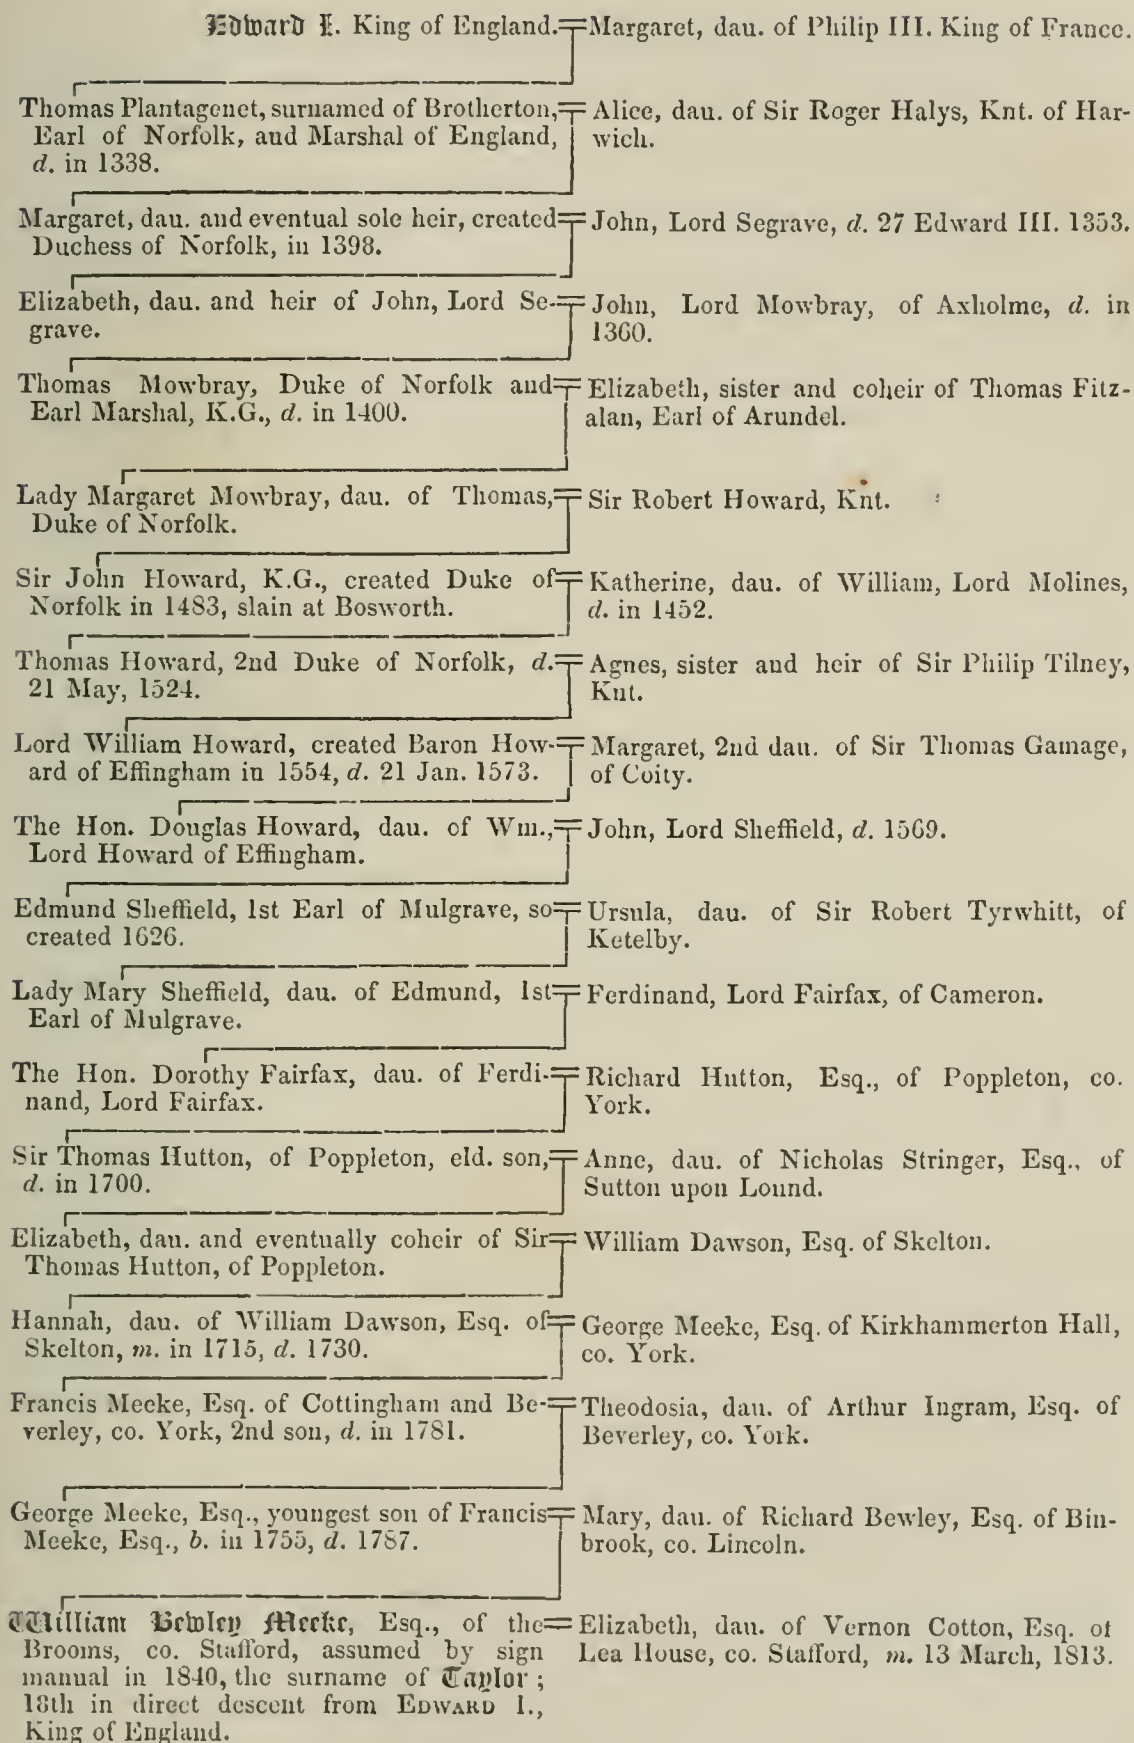 Edward I. King of England.=Margaret, dau. of Philip III. King of France.
Thomas Plantagenet, surnamed of Brotherton,=
Earl of Norfolk, and Marshal of England,
d. in 1338.
Alice, dau. of Sir Roger Halys, Knt. of Har-
wich.
Margaret, dau. and eventual sole heir, created=
Duchess of Norfolk, in 1398.
John, Lord Segrave, d. 27 Edward III. 1353.
Elizabeth, dau. and heir of John, Lord Se-=
grave.
John, Lord Mowbray, of Axholme, d. in
1360.
Thomas Mowbray, Duke of Norfolk and=
Earl Marshal, K.G., d. in 1400.
Elizabeth, sister and coheir of Thomas Fitz-
alan, Earl of Arundel.
Lady Margaret Mowbray, dau. of Thomas,=
Duke of Norfolk.
Sir Robert Howard, Knt.
Sir John Howard, K.G., created Duke of=
Norfolk in 1483, slain at Bosworth.
Katherine, dau. of William, Lord Molines,
d. in 1452.
Thomas Howard, 2nd Duke of Norfolk, d.=
21 May, 1524.
Agnes, sister and heir of Sir Philip Tilney,
Knt.
Lord William Howard, created Baron How-=
ard of Effingham in 1554, d. 21 Jan. 1573.
Margaret, 2nd dau. of Sir Thomas Gamage,
of Coity.
The Hon. Douglas Howard, dau. of Wm.,=
Lord Howard of Effingham.
John, Lord Sheffield, d. 1569.
Edmund Sheffield, 1st Earl of Mulgrave, so=
created 1626.
Ursula, dau. of Sir Robert Tyrwhitt, of
Ketelby.
Lady Mary Sheffield, dau. of Edmund, 1st=
Earl of Mulgrave.
Ferdinand, Lord Fairfax, of Cameron.
The Hon. Dorothy Fairfax, dau. of Ferdi-=
nand, Lord Fairfax.
Richard Hutton, Esq., of Poppleton, co.
York.
Sir Thomas Hutton, of Poppleton, eld. son,=
d. in 1700.
Anne, dau. of Nicholas Stringer, Esq., of
Sutton upon Lound.
Elizabeth, dau. and eventually coheir of Sir=
Thomas Hutton, of Poppleton.
William Dawson, Esq. of Skelton.
Hannah, dau. of William Dawson, Esq. of=
Skelton, m. in 1715, d. 1730.
George Meeke, Esq. of Kirkhammerton Hall,
co. York.
Francis Meeke, Esq. of Cottingham and Be-=
verley, co. York, 2nd son, d. in 1781.
Theodosia, dau. of Arthur Ingram, Esq. of
Beverley, co. York.
George Meeke, Esq., youngest son of Francis=
Meeke, Esq., b. in 1755, d. 1787.
Mary, dau. of Richard Bewley, Esq. of Bin-
brook, co. Lincoln.
William Bewley Meeke, Esq., of the=
Brooms, co. Stafford, assumed by sign
manual in 1840, the surname of Taylor;
18th in direct descent from EDWARD I.,
King of England.
Elizabeth, dau. of Vernon Cotton, Esq. of
Lea House, co. Stafford, m. 13 March, 1813.